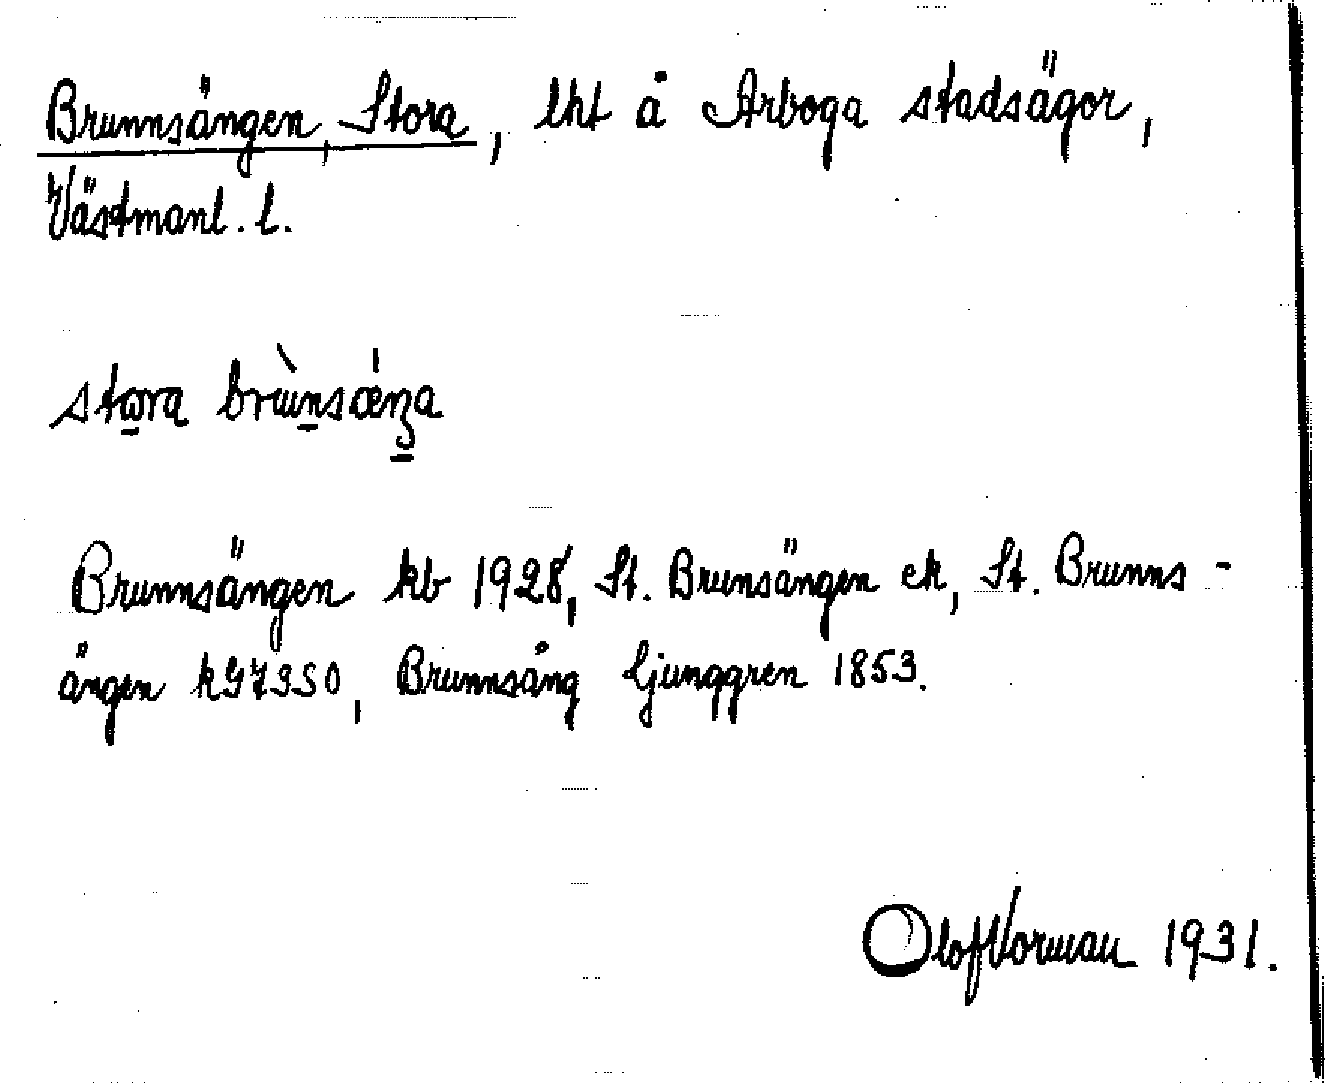 Brunnsängen, Stora, lht å Arboga stadsägor,
Västmanl. l.
stora brùnsǽŋa
Brunnsängen kb 1928, St. Brunsängen ek, St. Brunns-
ängen kG7350, Brunnsäng Ljunggren 1853.
Olof Vorman 1931.